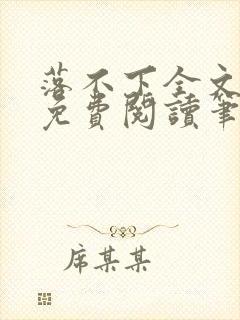 落不下全文
免費閱讀筆
席某某